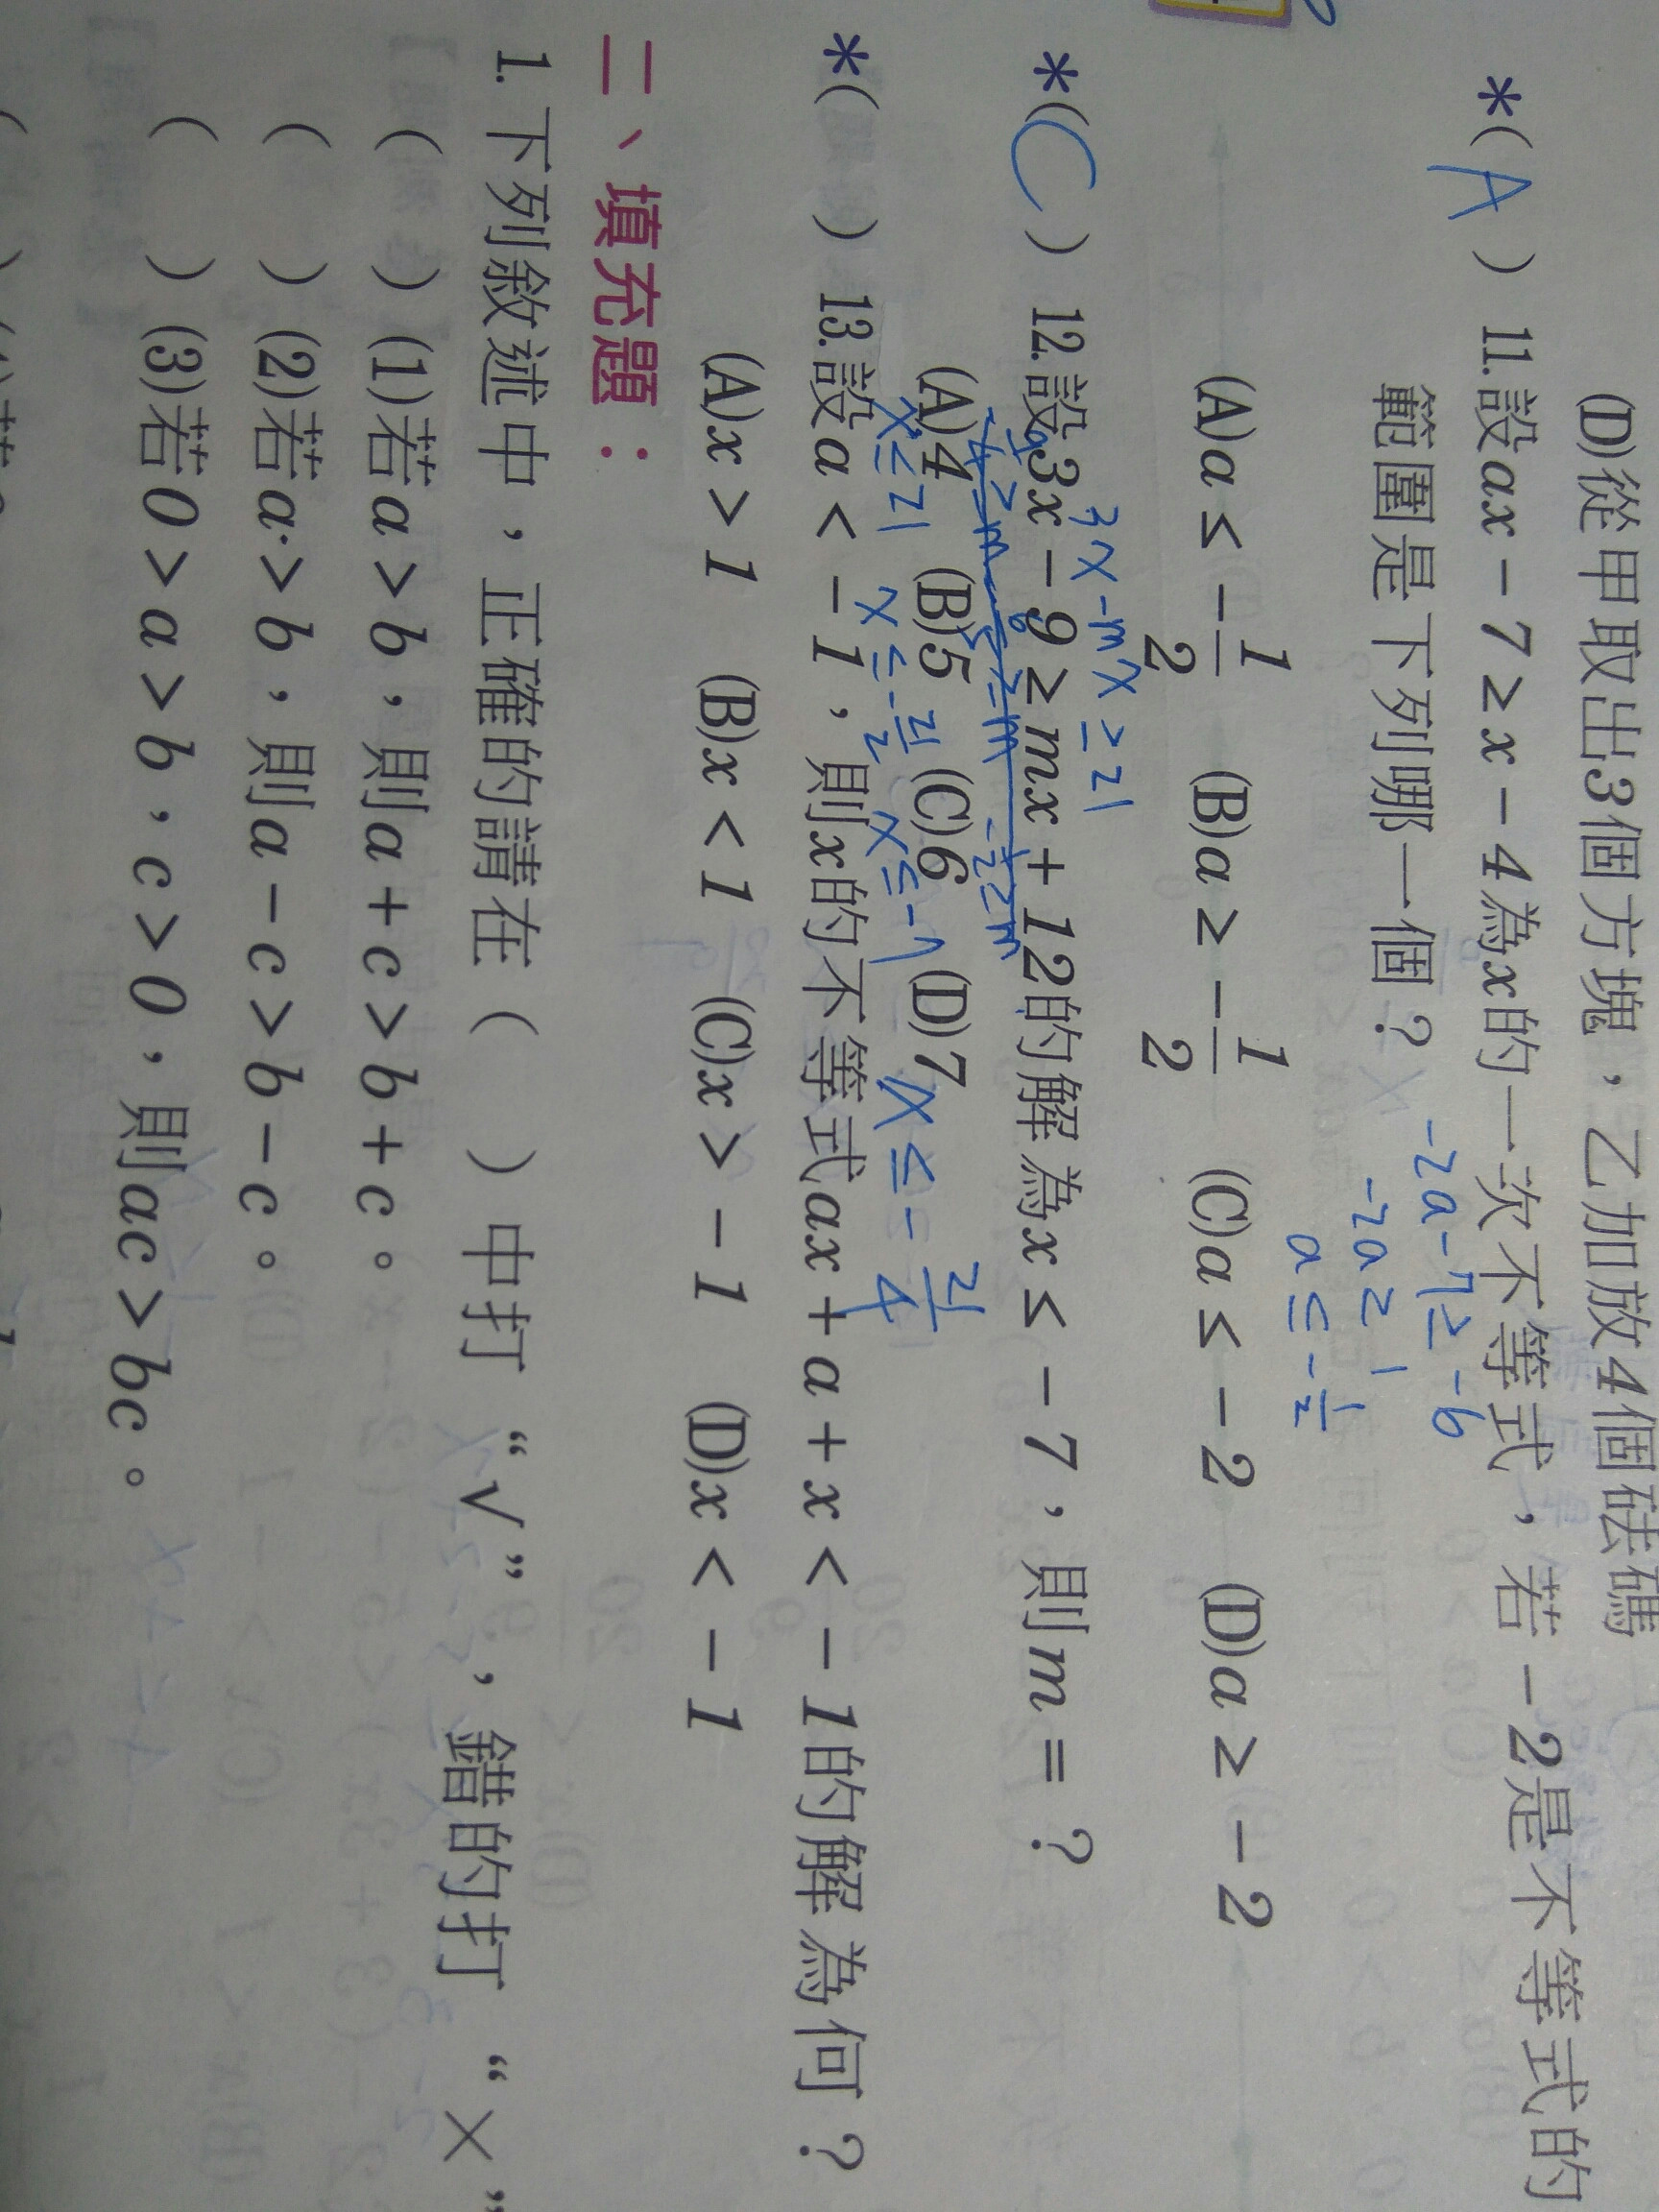 (D)從甲取出3個方塊，乙加放4個砝碼
*( A ) 11.設ax－7≥x－4為x的一次不等式，若－2是不等式的
範圍是下列哪一個？
-2a-7≥-6
-2a≥1
a≤-1/2
(A)a≤－1/2 (B)a≥－1/2 (C)a≤－2 (D)a≥－2
3x-mx≥21
*( C ) 12.設3x－9≥mx＋12的解為x≤－7，則m＝？
(A)4 (B)5 (C)6 (D)7
x≤21 x≤-21/2 x≤-7 x≤-21/4
*( ) 13.設a<－1，則x的不等式ax＋a＋x<－1的解為何？
(A)x>1 (B)x<1 (C)x>－1 (D)x<－1
二、填充題：
1.下列敘述中，正確的請在( )中打“√”，錯的打“×”
( ) (1)若a>b，則a＋c>b＋c。
( ) (2)若a>b，則a－c>b－c。
( ) (3)若0>a>b，c>0，則ac>bc。